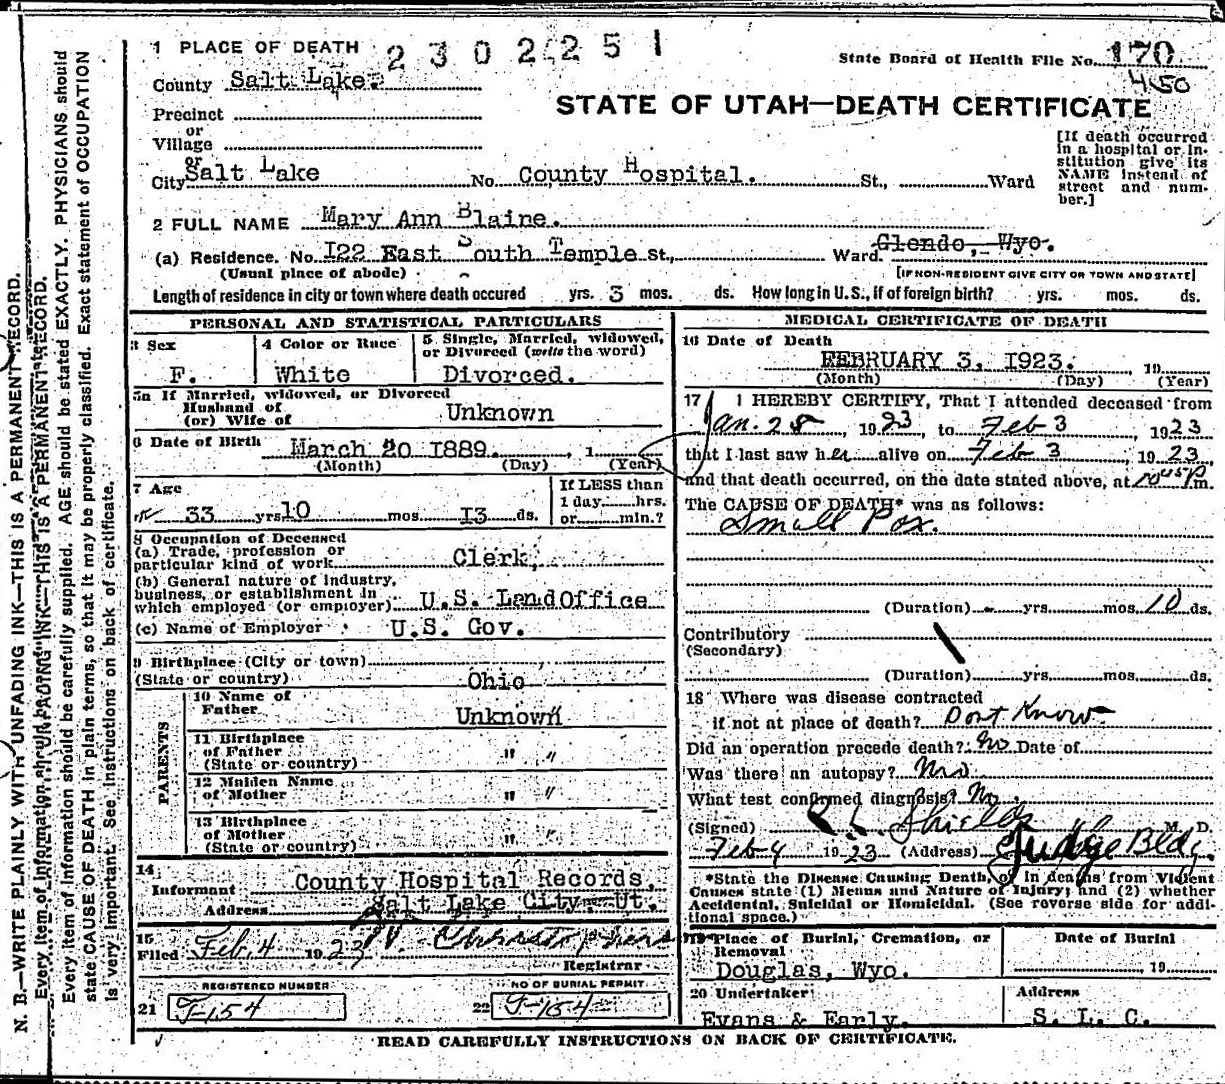 1 PLACE OF DEATH 2302251
State Board of Health File No. 170
450
County Salt Lake.
STATE OF UTAH—DEATH CERTIFICATE
Precinct
or
Village
or
City Salt Lake No. County Hospital. St., Ward
[If death occurred in a hospital or institution give its NAME instead of street and number.]
2 FULL NAME Mary Ann Blaine.
(a) Residence. No. I22 East South Temple st., Ward. Glendo, Wyo.
(Usual place of abode) [IF NON-RESIDENT GIVE CITY OR TOWN AND STATE]
Length of residence in city or town where death occured yrs. 3 mos. ds. How long in U.S., if of foreign birth? yrs. mos. ds.
PERSONAL AND STATISTICAL PARTICULARS
3 Sex
F.
4 Color or Race
White
5 Single, Married, widowed, or Divorced (write the word)
Divorced.
5a If Married, widowed, or Divorced
Husband of
(or) Wife of Unknown
6 Date of Birth March 20 I889. 1
(Month) (Day) (Year)
7 Age
33 yrs I0 mos. I3 ds.
If LESS than
1 day hrs.
or min.?
8 Occupation of Deceased
(a) Trade, profession or
particular kind of work Clerk,
(b) General nature of industry,
business, or establishment in
which employed (or employer) U.S. Land Office
(c) Name of Employer U.S. Gov.
9 Birthplace (City or town)
(State or country) Ohio
PARENTS
10 Name of
Father Unknown
11 Birthplace
of Father
(State or country) " "
12 Maiden Name
of Mother " "
13 Birthplace
of Mother
(State or country) " "
14
Informant County Hospital Records,
Address Salt Lake City, Ut.
15
Filed Feb. 4 1923
Registrar
REGISTERED NUMBER
21 F-154
NO OF BURIAL PERMIT
22 F-164
MEDICAL CERTIFICATE OF DEATH
16 Date of Death
FEBRUARY 3, I923. 19
(Month) (Day) (Year)
17 I HEREBY CERTIFY, That I attended deceased from
Jan. 28, 1923, to Feb 3, 1923
that I last saw her alive on Feb 3, 1923,
and that death occurred, on the date stated above, at 10 45 P m.
The CAUSE OF DEATH* was as follows:
Small Pox.
(Duration) yrs. mos. 10 ds.
Contributory
(Secondary)
(Duration) yrs. mos. ds.
18 Where was disease contracted
if not at place of death? Dont Know
Did an operation precede death? No Date of
Was there an autopsy? No
What test confirmed diagnosis? No.
(Signed) Shields M. D.
Feb 4 1923 (Address) Judge Bldg.
*State the Disease Causing Death, or in deaths from Violent
Causes state (1) Means and Nature of Injury; and (2) whether
Accidental, Suicidal or Homicidal. (See reverse side for additional space.)
19 Place of Burial, Cremation, or
Removal
Douglas, Wyo.
Date of Burial
19
20 Undertaker
Evans & Early.
Address
S. L. C.
READ CAREFULLY INSTRUCTIONS ON BACK OF CERTIFICATE.
N. B.—WRITE PLAINLY WITH UNFADING INK—THIS IS A PERMANENT RECORD.
Every item of information should be carefully supplied. AGE should be stated EXACTLY. PHYSICIANS should
state CAUSE OF DEATH in plain terms, so that it may be properly classified. Exact statement of OCCUPATION
is very important. See instructions on back of certificate.